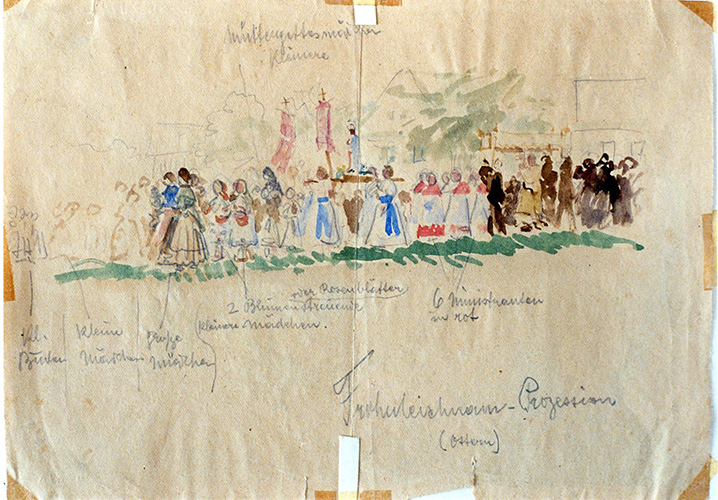 Muttergottesmädchen
kleinere
oder Rosenblätter
2 Blumenstreuende
kleinere Mädchen.
6 Ministranten
in rot
kl.
Buben
kleine
Mädchen
große
Mädchen
Frohnleichnam-Prozession
(Ostern)